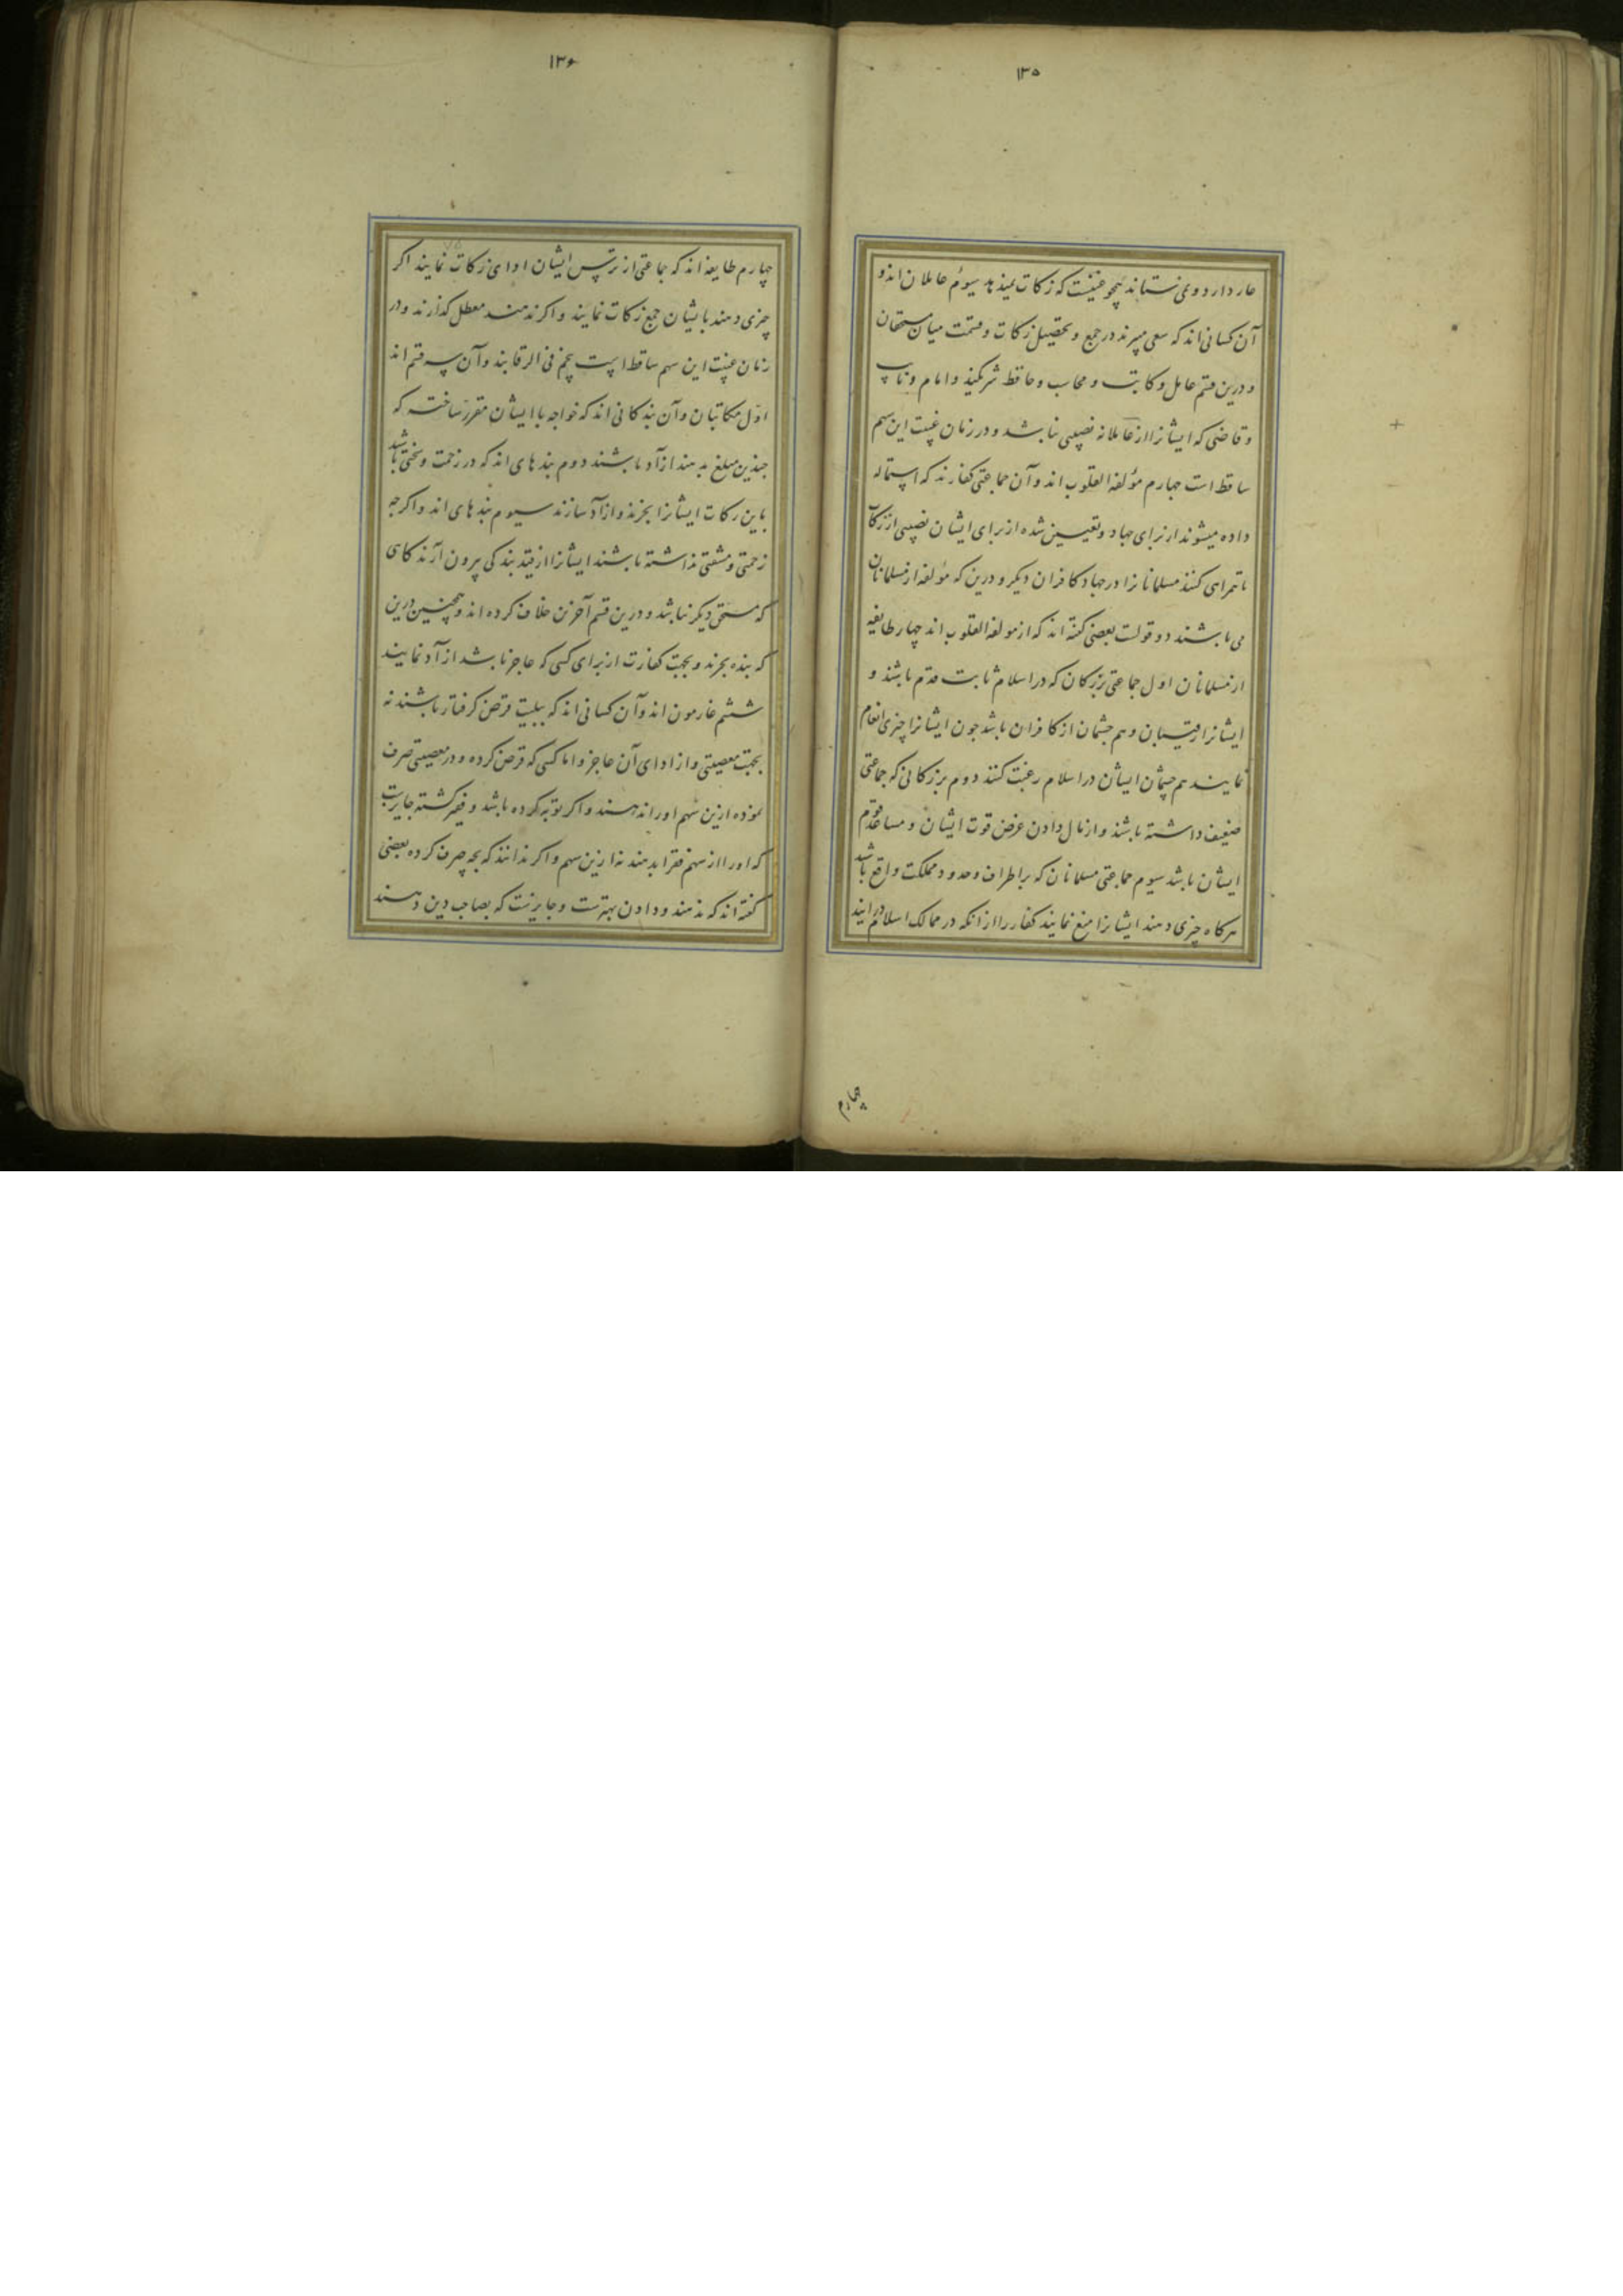 ۱۳۵
عار دارد و نمی ستاند همچو غنیست که زکات نمیدهد سیوم عاملان اند و
آن کسانی اند که سعی میبرند در جمع و تحصیل زکات و قسمت میان مستحقان
و درین قسم عامل و کاتب و محاسب و حافظ شریکند و امام و نایب
و قاضی که ایشانرا از عاملانه نصیبی نباشد و در زمان غیبت این سهم
ساقط است چهارم مؤلفة القلوب اند و آن جماعتی کفارند که استماله
داده میشوند از برای جهاد و تعیین شده از برای ایشان نصیبی از زکاة
تا همراهی کنند مسلمانانرا در جهاد کافران دیگر و درین که مؤلفه از مسلمانان
می باشند دو قولست بعضی گفته اند که از مولفة القلوب اند چهار طایفه
از مسلمانان اول جماعتی بزرگان که در اسلام ثابت قدم باشند و
ایشانرا رقیبان و هم چشمان از کافران باشد چون ایشانرا چیزی انعام
نمایند هم چشمان ایشان در اسلام رغبت کنند دوم بزرگانی که جماعتی
ضعیف داشته باشند و از مال دادن غرض قوت ایشان و مساعده قوم
ایشان باشد سیوم جماعتی مسلمانان که بر اطراف و حدود مملکت واقع باشد
هرکاه چیزی دهند ایشانرا منع نمایند کفار را از آنکه در ممالک اسلام درآیند
چهارم
۱۳۶
چهارم طایفه اند که جماعتی از ترس ایشان ادای زکات نمایند اکر
چیزی دهند بایشان جمع زکات نمایند و اکر ندهند معطل گذارند و در
زمان غیبت این سهم ساقط است پنجم فی الرقابند و آن سه قسم اند
اول مکاتبان و آن بندکانی اند که خواجه با ایشان مقرر ساخته که
چندین مبلغ بدهند تا آزاد باشند دوم بندهای اند که در زحمت و سختی باشد
باین زکات ایشانرا بخرند و آزاد سازند سیوم بندهای اند و اکرچه
زحمتی و مشقتی نداشته باشند ایشانرا از قید بندکی بیرون آرند کاهی
که مستحق دیکر نباشد و درین قسم آخرین خلاف کرده اند و همچنین درین
که بنده بخرند و بجهت کفارت از برای کسی که عاجز باشد آزاد نمایند
ششم غارمون اند و آن کسانی اند که ببلیت قرض کرفتار باشند نه
بجهت معصیتی و از ادای آن عاجز و اما کسی که قرض کرده و در معصیتی صرف
نموده ازین سهم او را ندهند و اکر توبه کرده باشد و فقیر کشته جایزست
که او را از سهم فقرا بدهند نه ازین سهم و اکر ندانند که بچه صرف کرده بعضی
گفته اند که ندهند و دادن بهترست و جایزست که بصاحب دین دهند